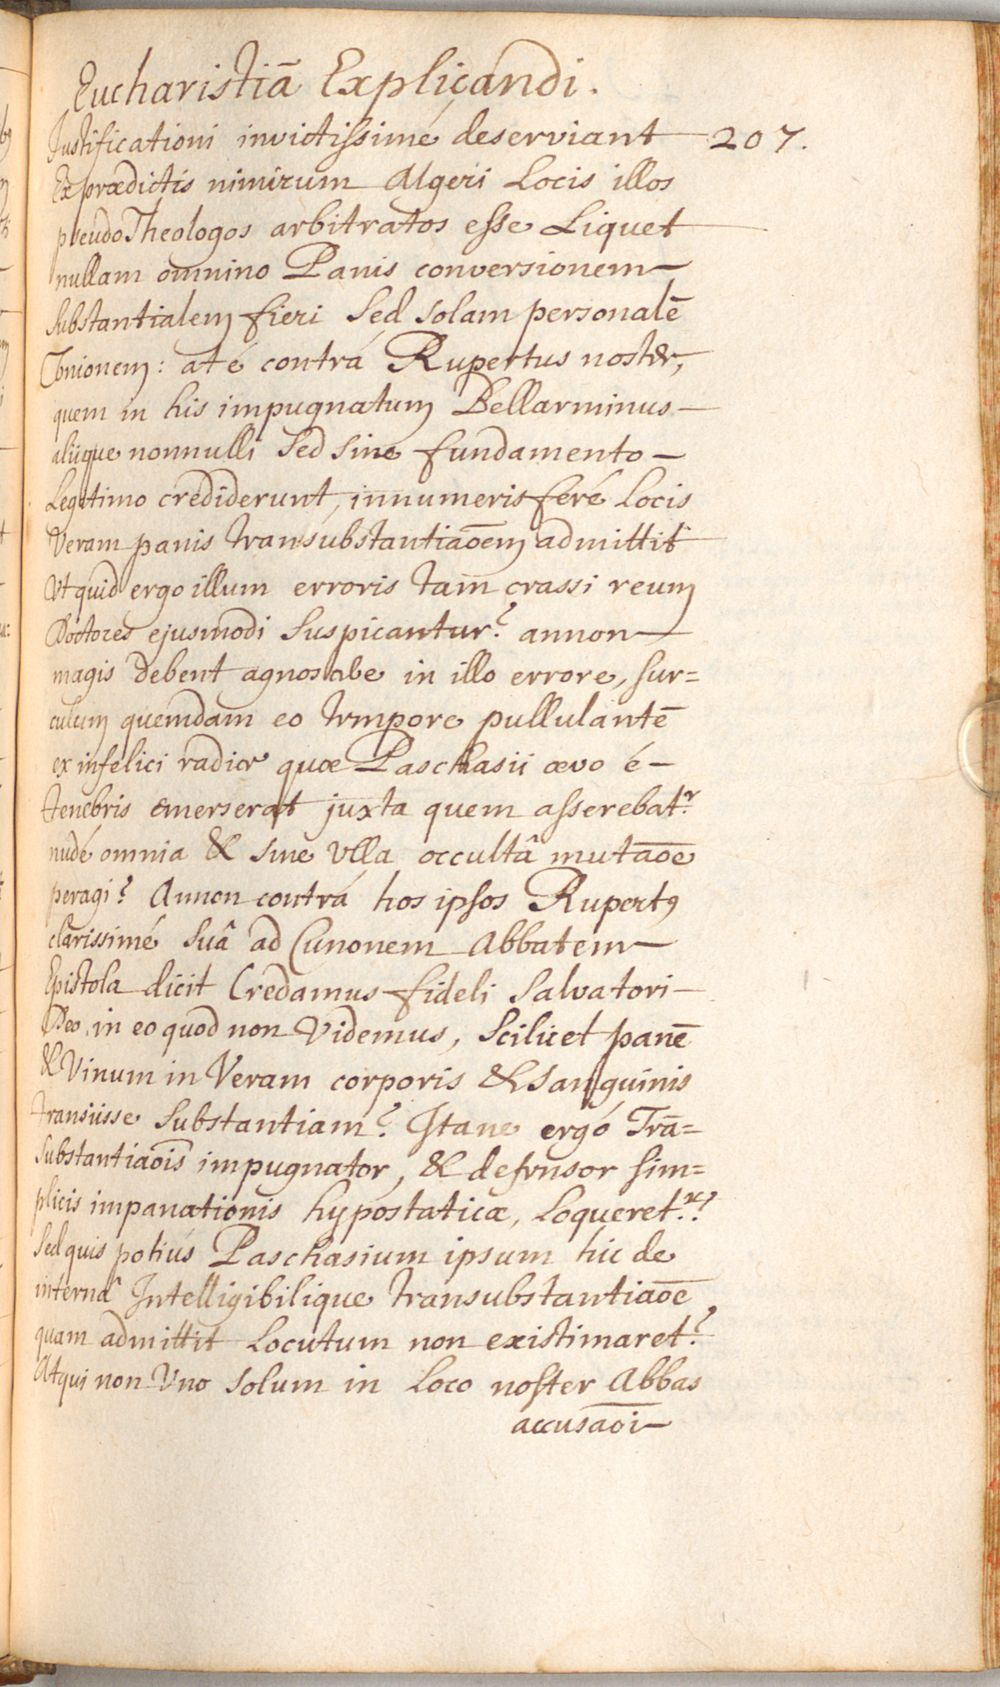 Eucharistiā Explicandi.
Justificationi invictissimé deserviant 207.
Ex prædictis nimirum Algeri Locis illos
pseudo Theologos arbitratos esse Liquet
nullam omnino Panis conversionem
substantialem fieri sed solam personalē
Vnionem: at é contrá Rupertus noster,
quem in his impugnatum Bellarminus
aliique nonnulli sed sine fundamento
Legitimo crediderunt, innumeris feré Locis
Veram panis transubstantiaōem admittit
Vt quid ergo illum erroris tam crassi reum
Doctores ejusmodi suspicantur? annon
magis debent agnoscere in illo errore, sur=
culum quemdam eo tempore pullulantē
ex infelici radice quæ Paschasii ævo é
tenebris emerserat juxta quem asserebatr
nudé omnia & sine Vlla occultâ mutaōe
peragi? Annon contrá hos ipsos Rupertꝰ
clarissimé suâ ad Cunonem Abbatem
Epistola dicit Credamus fideli Salvatori
Deo, in eo quod non Videmus, scilicet panē
& Vinum in Veram corporis & sanguinis
transiisse substantiam? Itane ergó Trā=
substantiaōis impugnator, & defensor sim=
plicis impanationis hypostaticæ, Loqueretr?
Sed quis potiús Paschasium ipsum hic de
internâ Intelligibilique transubstantiaōe
quam admittit Locutum non existimaret?
Atqui non Vno solum in Loco noster Abbas
accusaōi